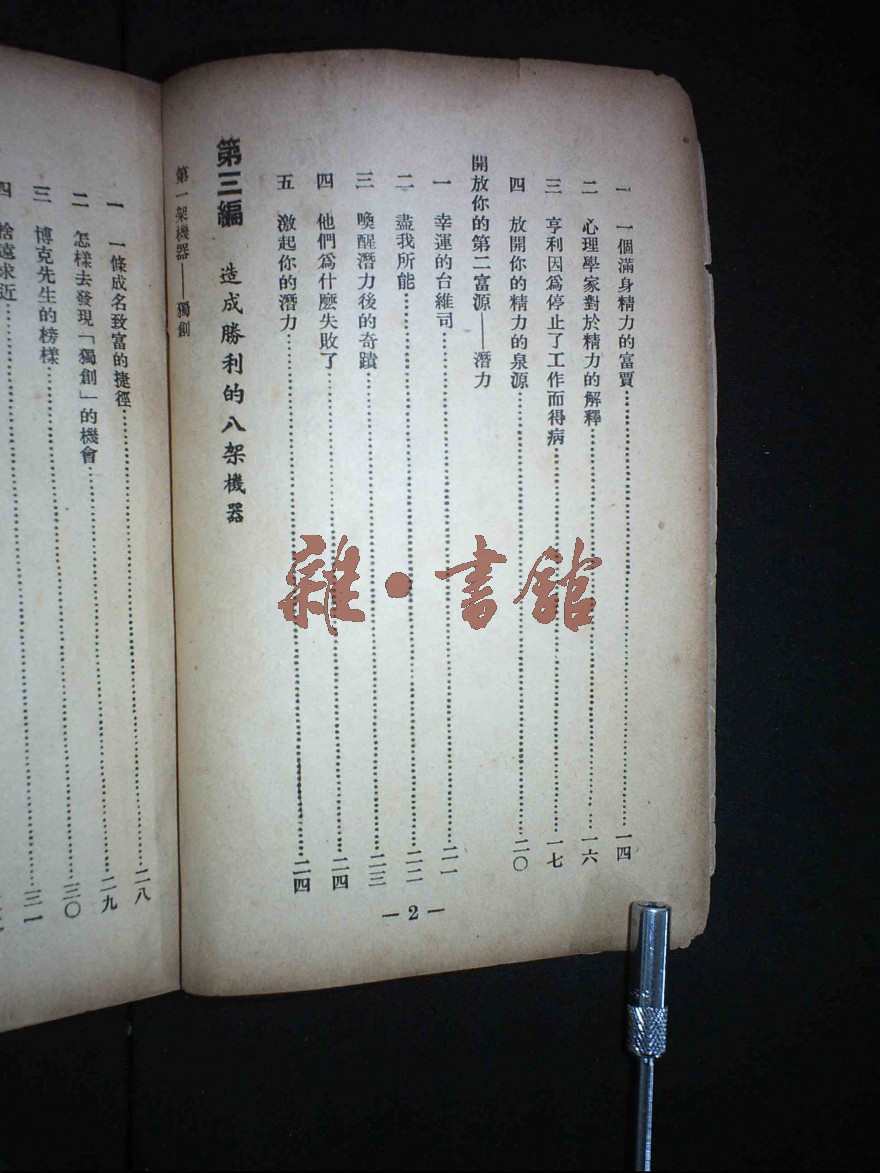 一 一個滿身精力的富賈……一四
二 心理學家對於精力的解釋……一六
三 亨利因爲停止了工作而得病……一七
四 放開你的精力的泉源……二〇
開放你的第二富源——潛力
一 幸運的台維司……二一
二 盡我所能……二二
三 喚醒潛力後的奇蹟……二三
四 他們爲什麽失敗了……二四
五 激起你的潛力……二四
第三編 造成勝利的八架機器
第一架機器——獨創
— 2 —
一 一條成名致富的捷徑……二八
二 怎樣去發現「獨創」的機會……二九
三 博克先生的榜樣……三〇
四 捨遠求近……三一
雜·書館